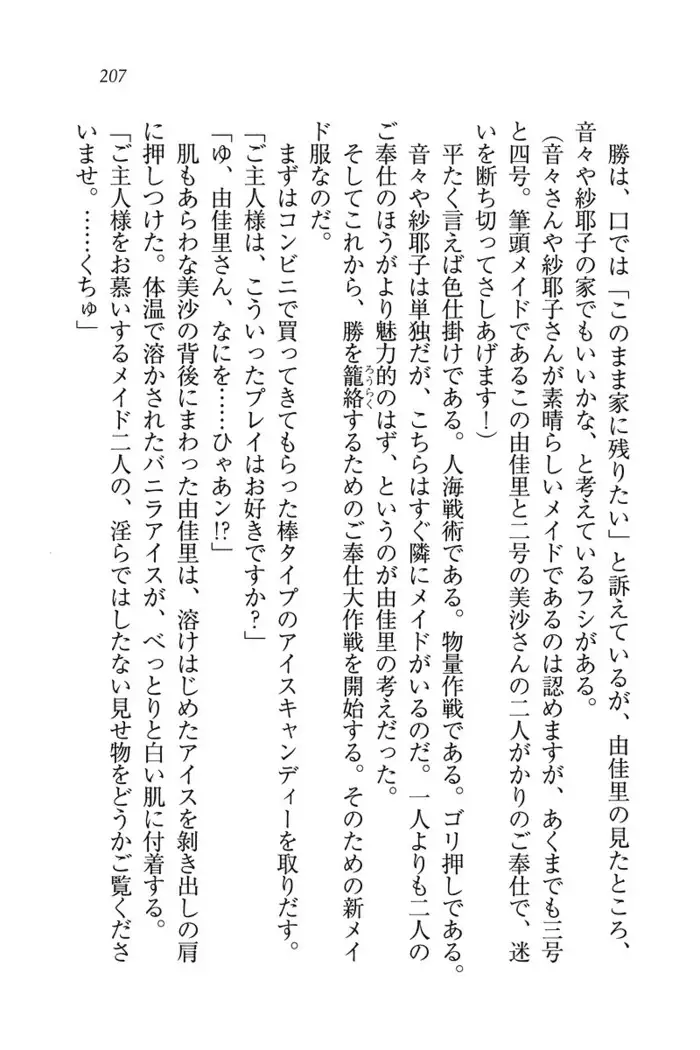 207
勝は、口では「このまま家に残りたい」と訴えているが、由佳里の見たところ、
音々や紗耶子の家でもいいかな、と考えているフシがある。
（音々さんや紗耶子さんが素晴らしいメイドであるのは認めますが、あくまでも三号
と四号。筆頭メイドであるこの由佳里と二号の美沙さんの二人がかりのご奉仕で、迷
いを断ち切ってさしあげます！）
平たく言えば色仕掛けである。人海戦術である。物量作戦である。ゴリ押しである。
音々や紗耶子は単独だが、こちらはすぐ隣にメイドがいるのだ。一人よりも二人の
ご奉仕のほうがより魅力的のはず、というのが由佳里の考えだった。
そしてこれから、勝を籠絡するためのご奉仕大作戦を開始する。そのための新メイ
ろうらく
ド服なのだ。
まずはコンビニで買ってきてもらった棒タイプのアイスキャンディーを取りだす。
「ご主人様は、こういったプレイはお好きですか？」
「ゆ、由佳里さん、なにを……ひゃあン!?」
肌もあらわな美沙の背後にまわった由佳里は、溶けはじめたアイスを剝き出しの肩
に押しつけた。体温で溶かされたバニラアイスが、べっとりと白い肌に付着する。
「ご主人様をお慕いするメイド二人の、淫らではしたない見せ物をどうかご覧くださ
いませ。……くちゅ」